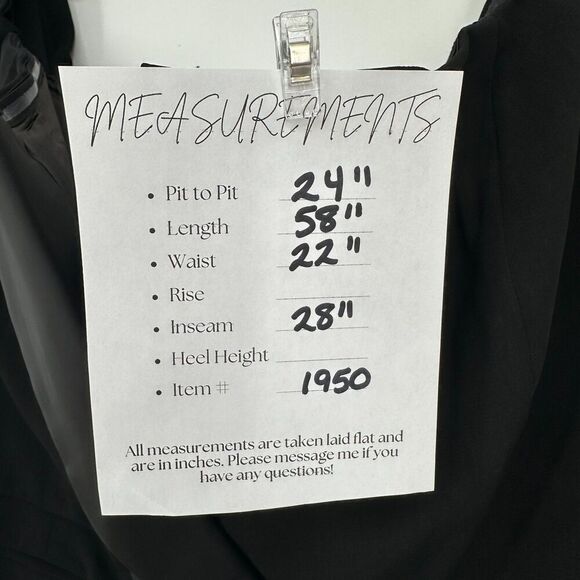 MEASUREMENTS
• Pit to Pit 24"
• Length 58"
• Waist 22"
• Rise
• Inseam 28"
• Heel Height
• Item # 1950
All measurements are taken laid flat and
are in inches. Please message me if you
have any questions!